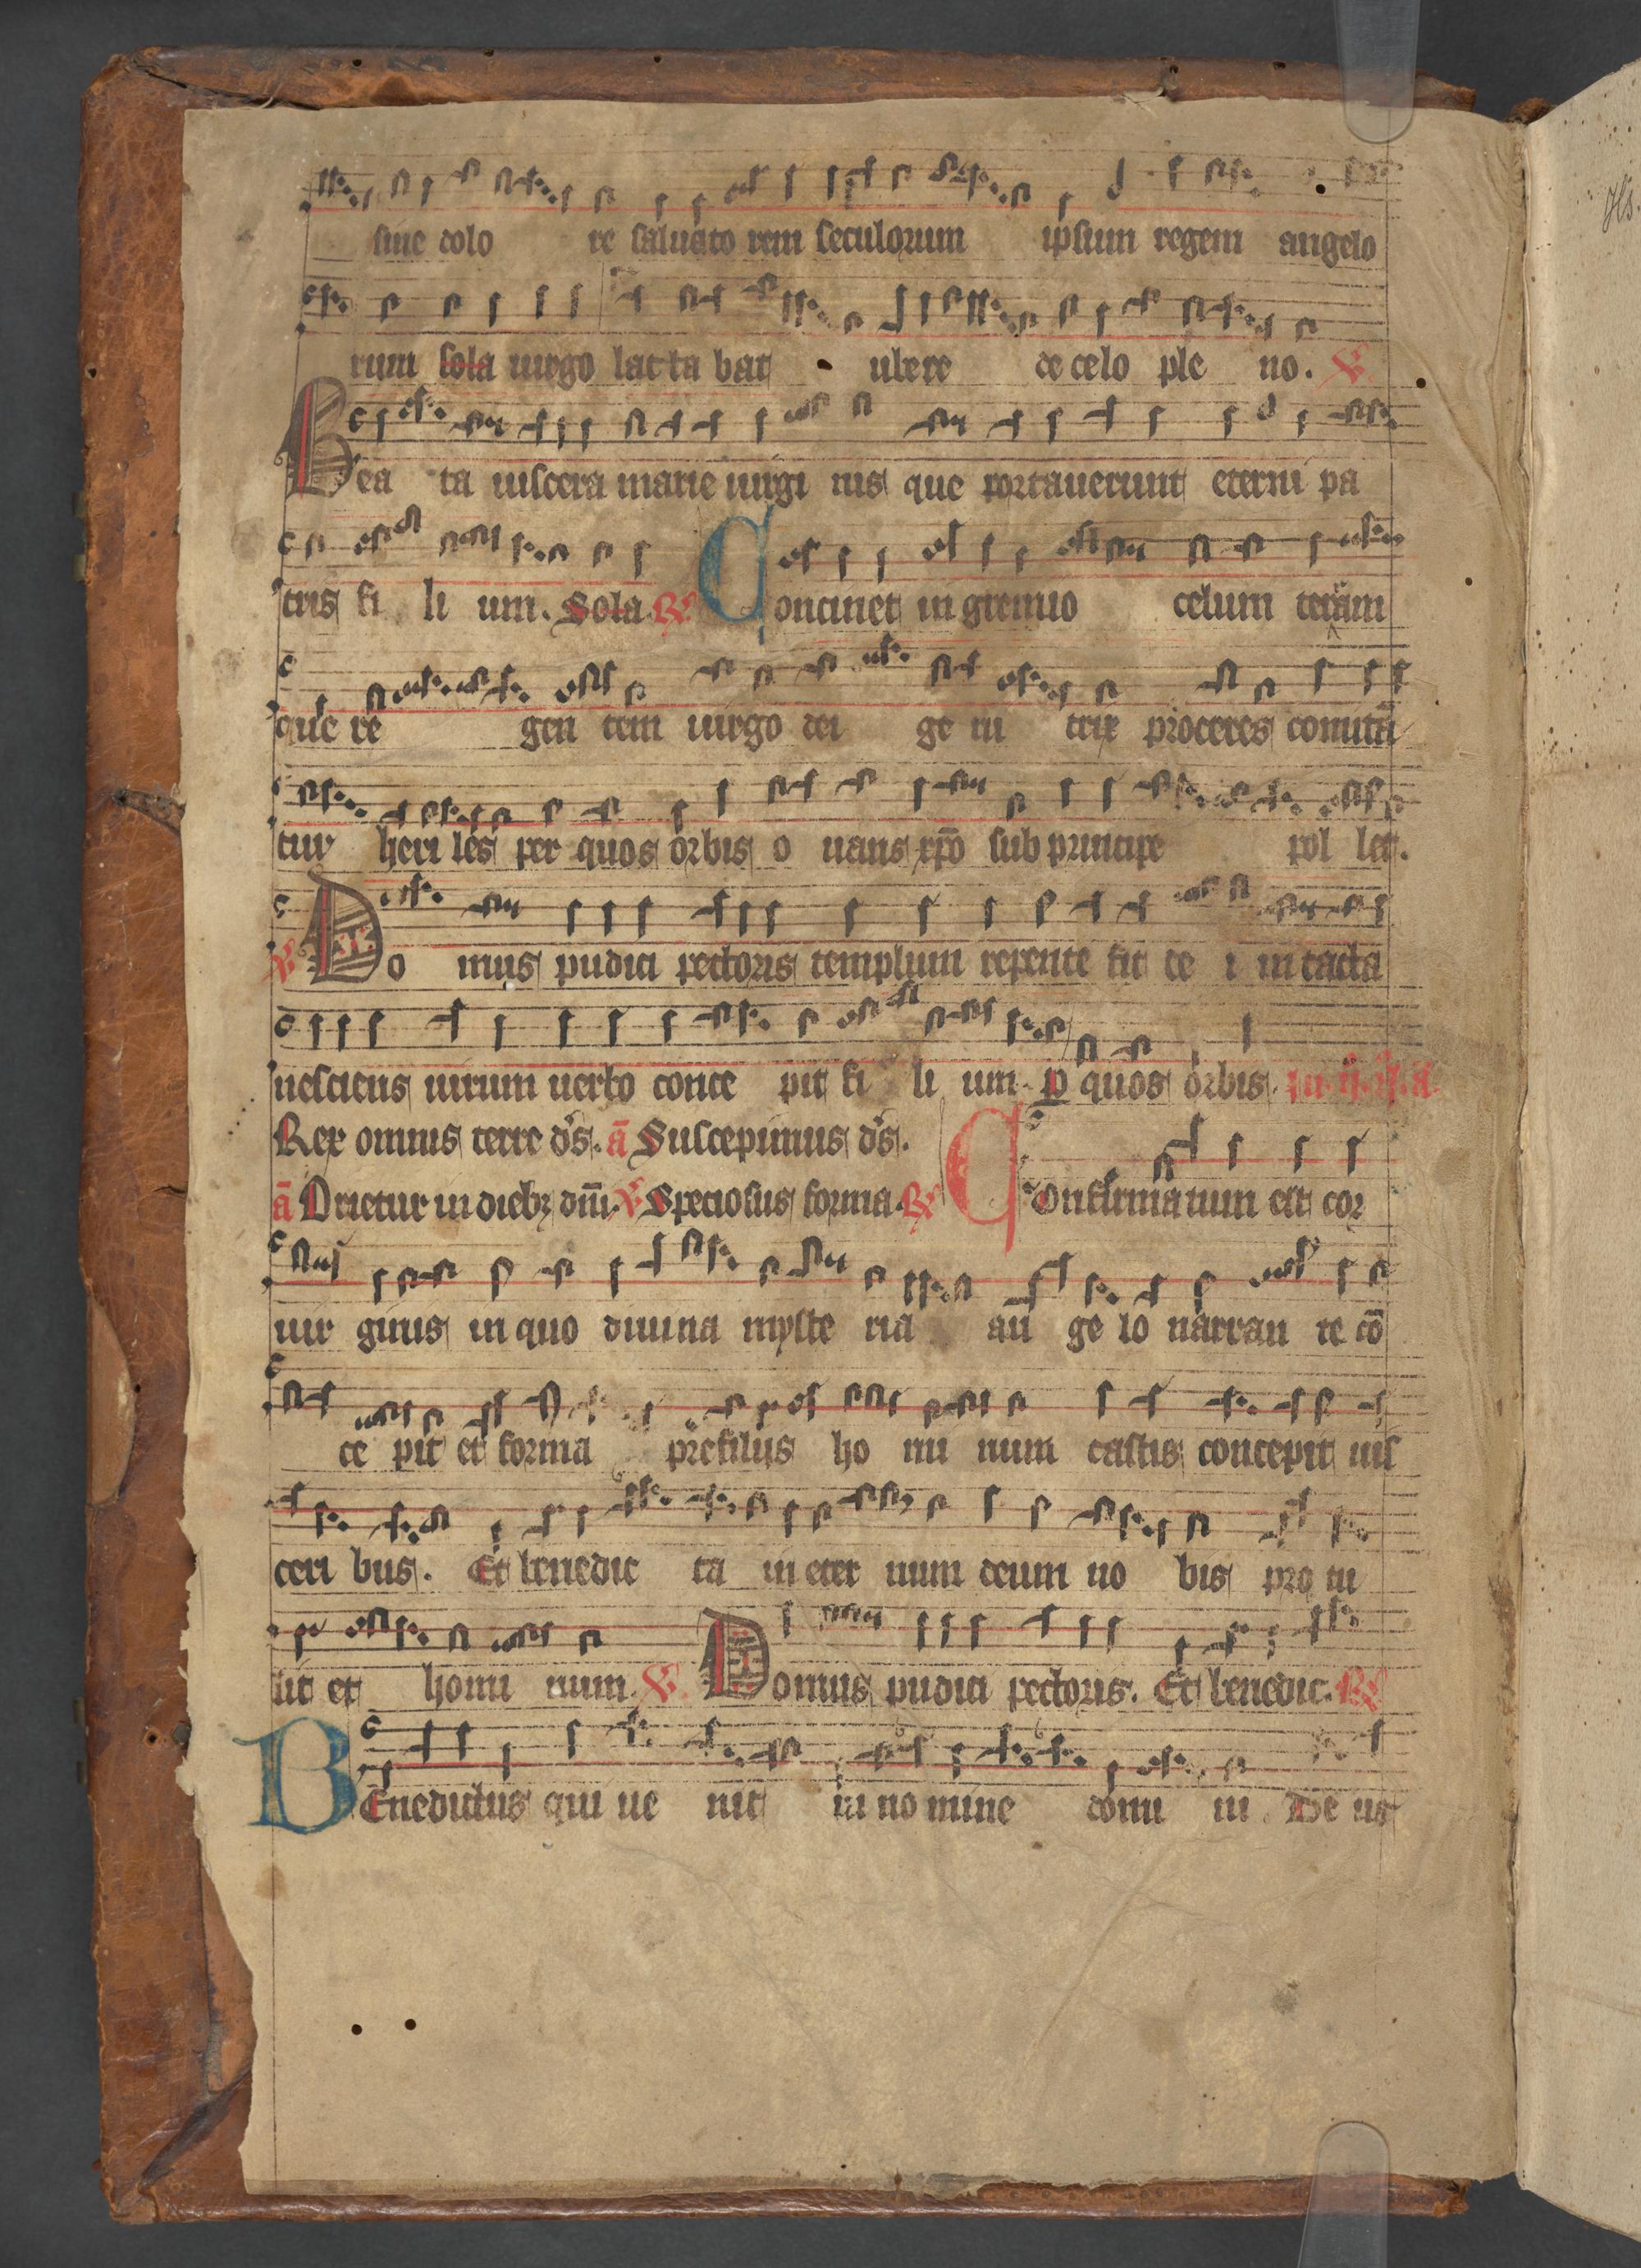 sine dolo re saluato rem seculorum ipsum regem angelo
rum sola uirgo lacta bat ubere de celo ple no. V
Bea ta uiscera marie uirgi nis que portauerunt eterni pa
tris fi li um. Sola. R Continet in gremio celum terram
que re gen tem uirgo dei ge ni trix proceres comitā
tur heri les per quos orbis o uans xp̄o sub principe pol let.
V Do mus pudici pectoris templum repente fit de i intacta
nesciens uirum uerbo conce pit fi li um. p quos orbis.
Rex omnis terre d's. ā Suscepimus d's.
ā Orietur in dieb; dn̄i. V Speciosus forma. R Confirmatum est cor
uir ginis in quo diuina myste ria an ge lo narran te cō
ce pit et forma pre filiis ho mi num castis concepit uis
ceri bus. Et benedic ta in eter num deum no bis pro tu
lit et homi num. V Domus pudici pectoris. Et benedic. R
BEnedictus qui ue nit in no mine domi ni De us
Hs.